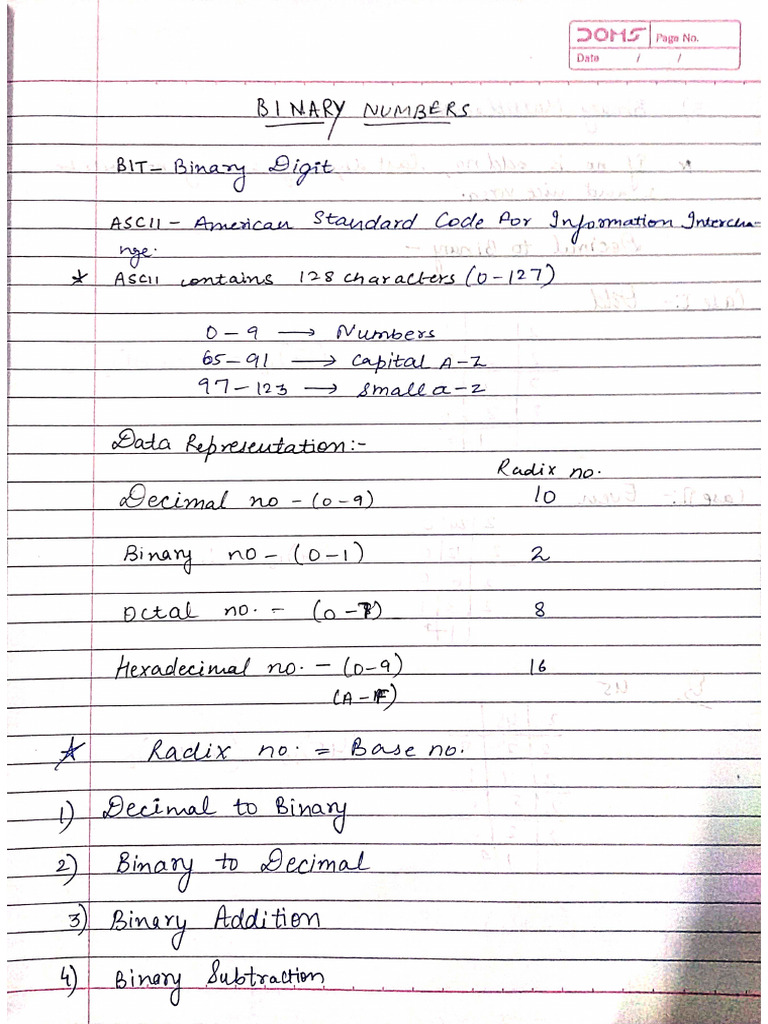 DOMS Page No.
Date / /
BINARY NUMBERS
BIT - Binary Digit
ASCII - American Standard Code For Information Intercha-
nge.
* ASCII contains 128 characters (0-127)
0-9 → Numbers
65-91 → Capital A-Z
97-123 → Small a-z
Data Representation:-
Radix no.
Decimal no - (0-9) 10
Binary no - (0-1) 2
Octal no. - (0-7) 8
Hexadecimal no. - (0-9) 16
(A-F)
* Radix no. = Base no.
1) Decimal to Binary
2) Binary to Decimal
3) Binary Addition
4) Binary Subtraction